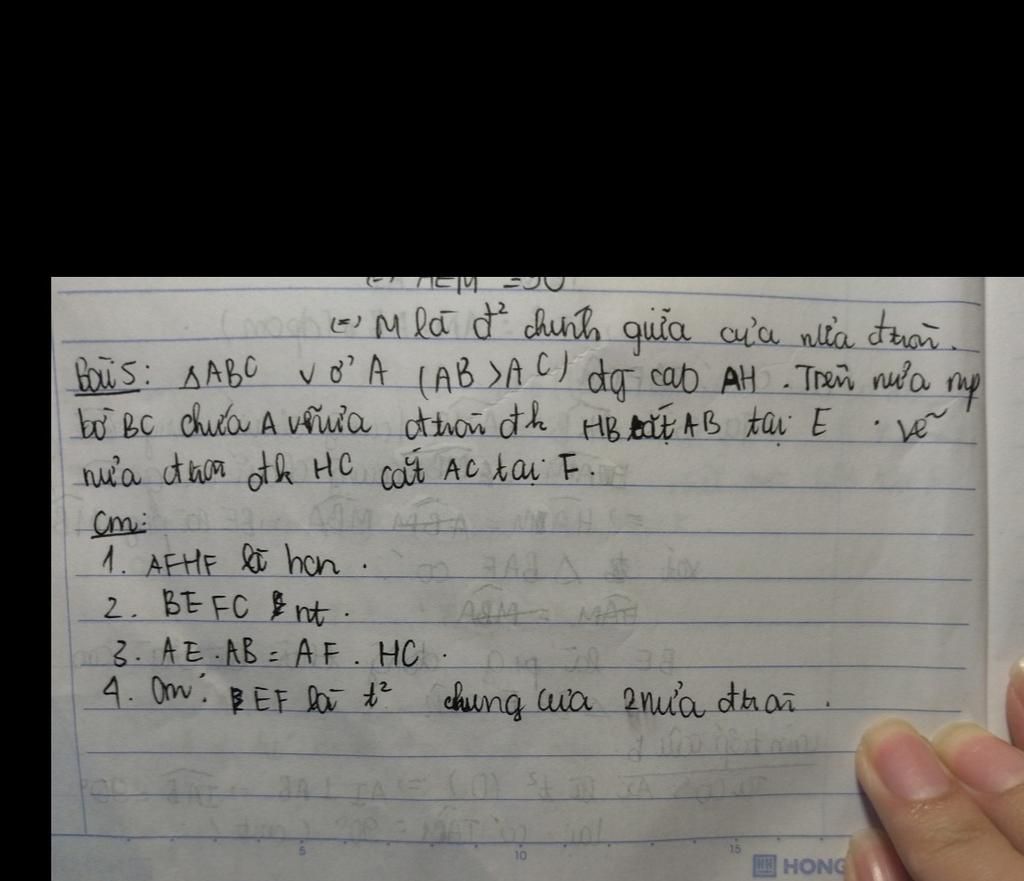 =) M là đ² chính giữa của nửa đtròn.
Bài 5: △ABC v ở A (AB > AC) đg cao AH. Trên nửa mp
bờ BC chứa A vẽ nửa đtròn đk HB cắt AB tại E. vẽ
nửa đtròn đk HC cắt AC tại F.
Cm:
1. AFHF là hcn.
2. BEFC nt.
3. AE.AB = AF.HC.
4. Cm: EF là t² chung của 2 nửa đtròn.
5 10 15
HONG